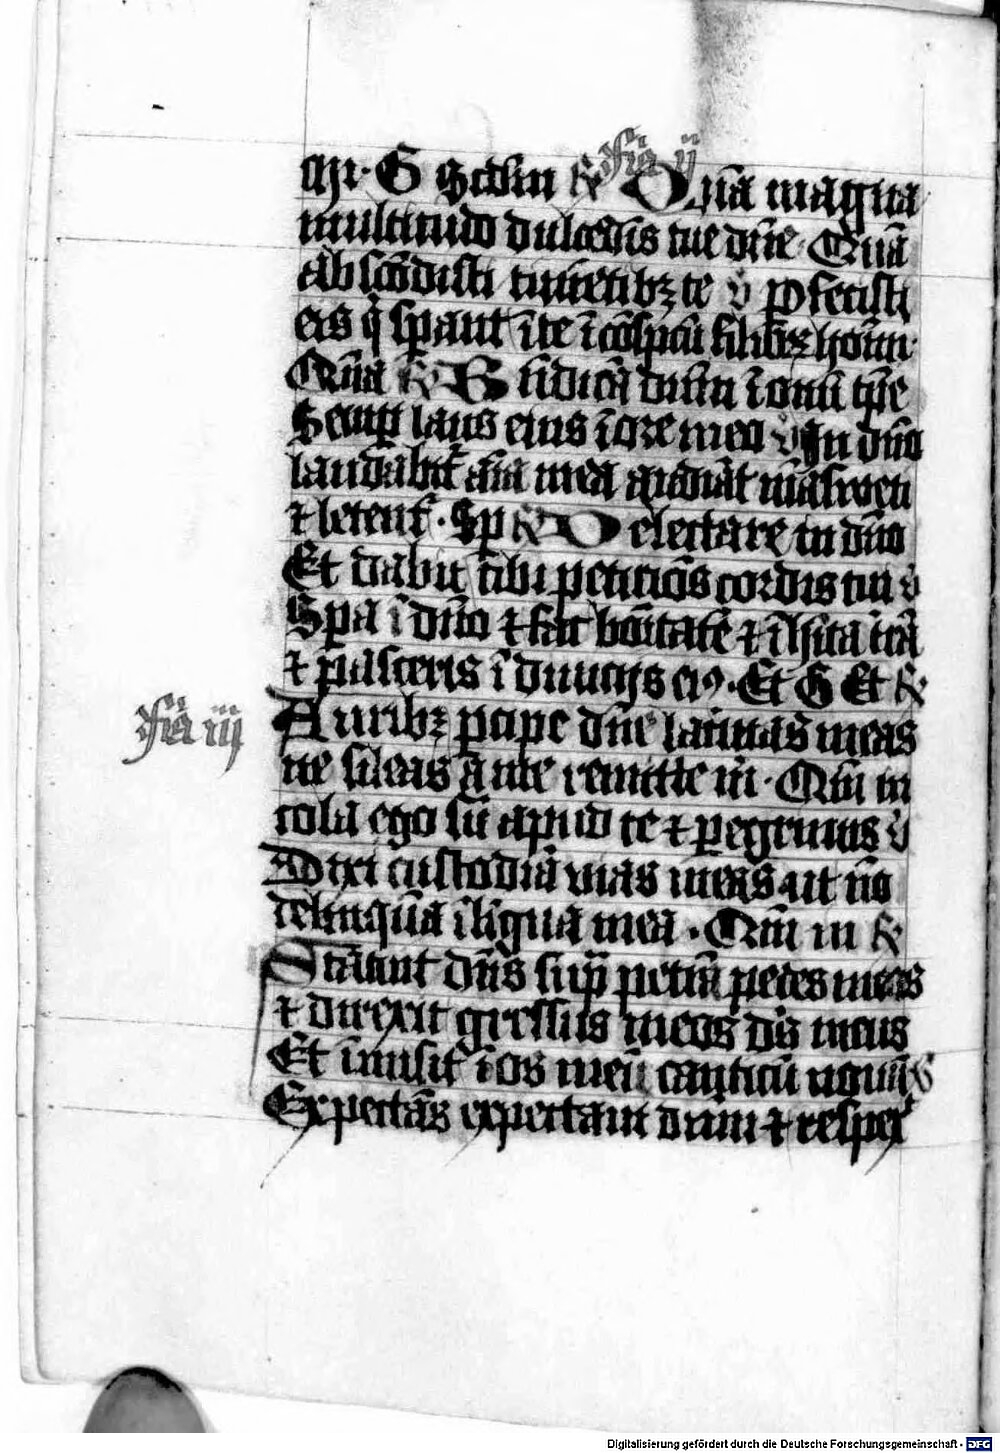 Fia ij
G Scdm ℟ Quā magna
multitudo dulcedīs tue dn̄e Quā
abscōdisti timētibꝫ te ℣ ꝓfecisti
eis q̇ sꝑant ī te ī cōspcū filioꝝ hoīm
Quā ℟ B n̄dicā dūm ī om̄i tp̄e
Semꝑ laus eius ī ore meo ℣ In dn̄o
laudabit̄ aīa mea audiāt māsueti
⁊ letent̄. Sp ℟ Delectare in dn̄o
Et dabit tibi peticiōes cordis tui ℣
Spa ī dn̄o ⁊ fac bōitatē ⁊ īhita trā
⁊ pasceris ī diuicijs eiꝯ. Et G Et ℟
Fia iij
Auribꝫ ꝑcipe dn̄e lac̄mas meas
ne sileas a me remitte m̄. Qm̄ in
cola ego sū apud te ⁊ ꝑegrinus ℣
Dixi custodiā vias meas ut nō
delinquā ī ligua mea. Qm̄ in ℟
Statuit dn̄s suꝑ petrā pedes meos
⁊ direxit gressus meos ds̄ meus
Et īmisit ī os meū canticū nouū ℣
Expectās expectaui dnm ⁊ respex̄
Digitalisierung gefördert durch die Deutsche Forschungsgemeinschaft - DFG